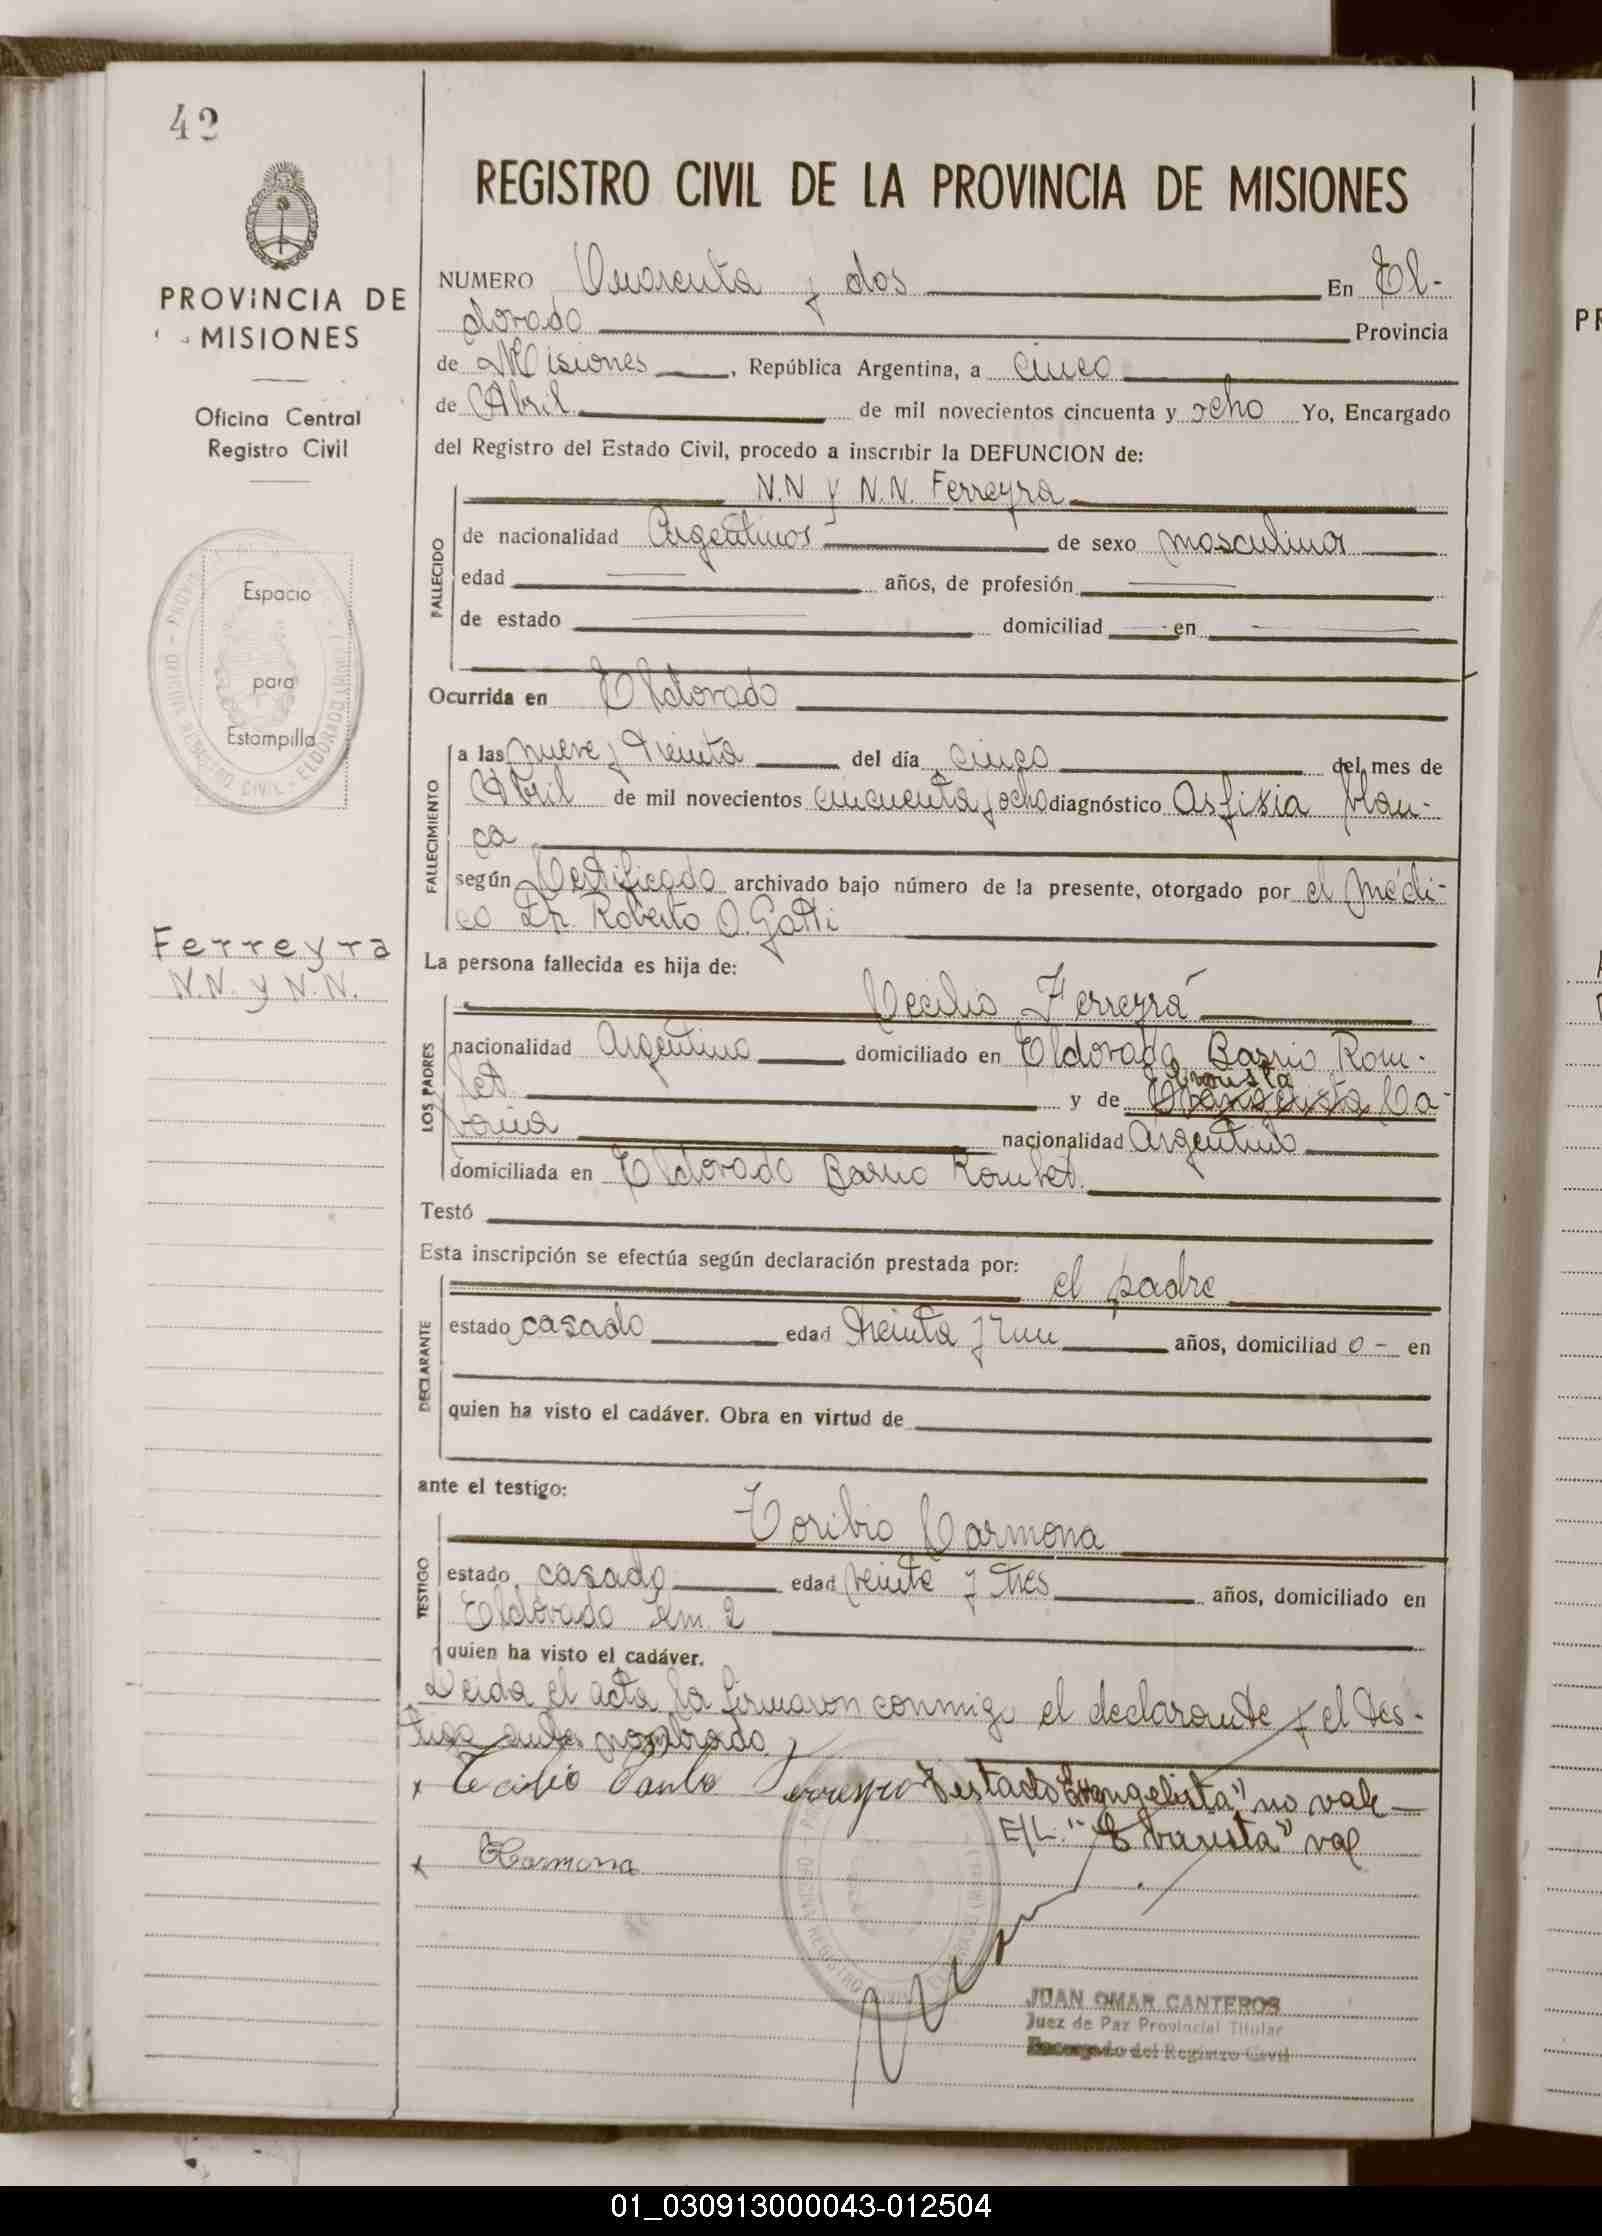 42
PROVINCIA DE
MISIONES
Oficina Central
Registro Civil
Espacio
para
Estampilla
Ferreyra
N.N. y N.N.
REGISTRO CIVIL DE LA PROVINCIA DE MISIONES
NUMERO Cuarenta y dos En El-
dorado Provincia
de Misiones, República Argentina, a cinco
de Abril de mil novecientos cincuenta y ocho Yo, Encargado
del Registro del Estado Civil, procedo a inscribir la DEFUNCION de:
N.N y N.N. Ferreyra
FALLECIDO
de nacionalidad Argentinos de sexo masculino
edad años, de profesión
de estado domiciliad en
Ocurrida en Eldorado
FALLECIMIENTO
a las nueve y treinta del día cinco del mes de
Abril de mil novecientos cincuenta y ocho diagnóstico Asfixia blan-
ca
según Certificado archivado bajo número de la presente, otorgado por el médi-
co Dr. Roberto O. Gatti
La persona fallecida es hija de:
Cecilio Ferreyra
LOS PADRES
nacionalidad Argentino domiciliado en Eldorado Barrio Rom-
bet y de Evarista Ca-
nacionalidad Argentina
domiciliada en Eldorado Barrio Rombet.
Testó
Esta inscripción se efectúa según declaración prestada por:
el padre
DECLARANTE
estado casado edad treinta y un años, domiciliad o - en
quien ha visto el cadáver. Obra en virtud de
ante el testigo:
Toribio Carmona
TESTIGO
estado casado edad veinte y tres años, domiciliado en
Eldorado km. 2
quien ha visto el cadáver.
Leida el acta la firmaron conmigo el declarante y el tes-
tigo antes nombrado.
x Cecilio Ferreyra Testado "Evangelista" no vale
E/L. "Evarista" vale
x Carmona
JUAN OMAR CANTEROS
Juez de Paz Provincial Titular
Encargado del Registro Civil
01_030913000043-012504